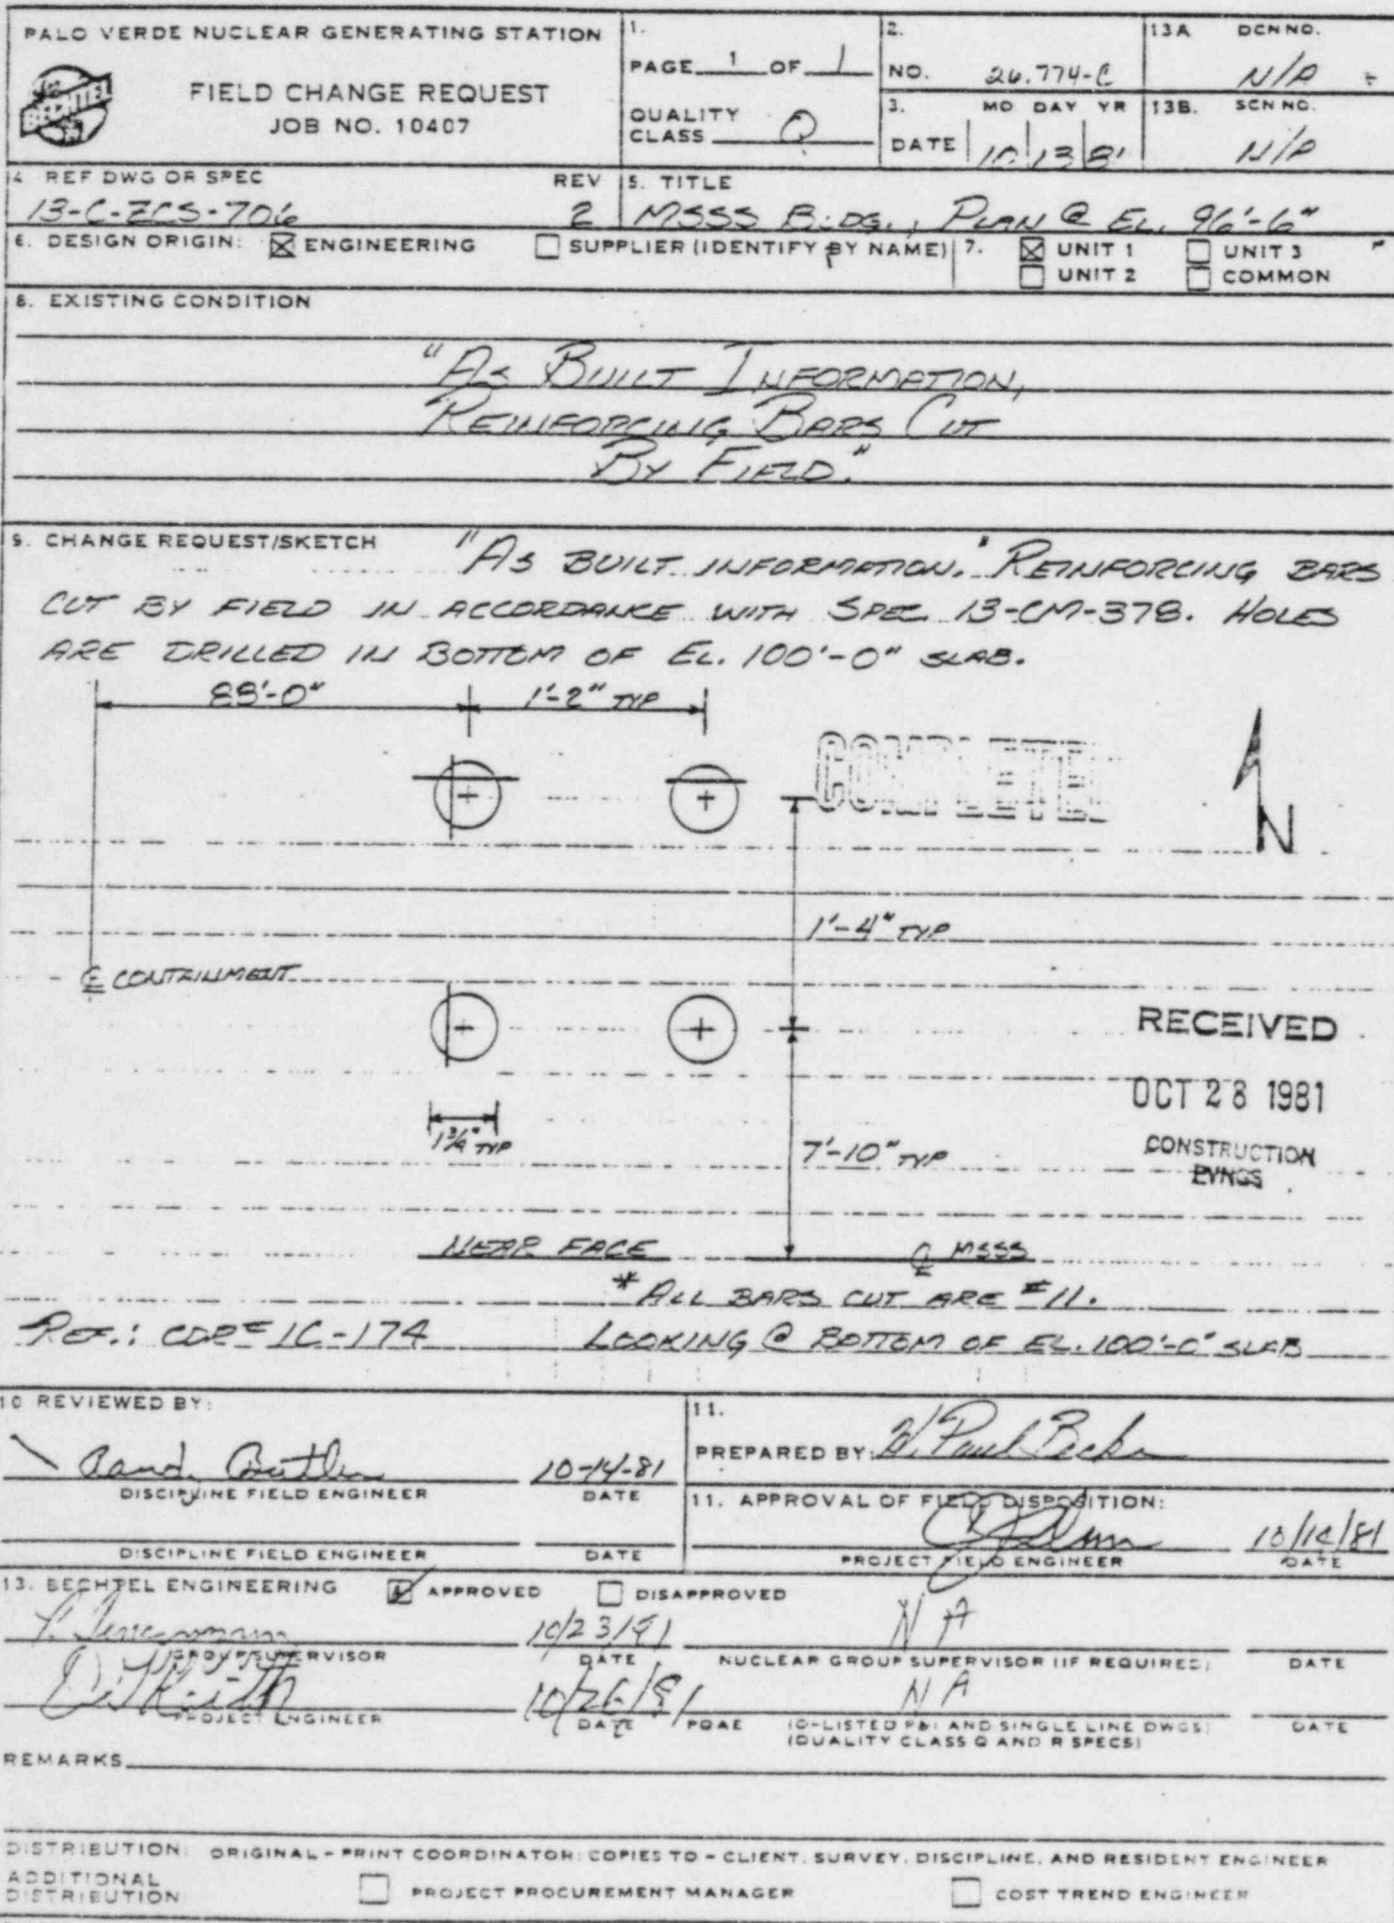 PALO VERDE NUCLEAR GENERATING STATION
BECHTEL
FIELD CHANGE REQUEST
JOB NO. 10407
1.
PAGE 1 OF 1
QUALITY
CLASS Q
2.
NO. 26.774-C
3. MO DAY YR
DATE 10 13 81
13A DCN NO.
N/A
13B. SCN NO.
N/A
4. REF DWG OR SPEC REV
13-C-ZCS-706 2
5. TITLE
MSSS BLDG., PLAN @ EL. 96'-6"
6. DESIGN ORIGIN: ☒ ENGINEERING ☐ SUPPLIER (IDENTIFY BY NAME)
7. ☒ UNIT 1 ☐ UNIT 3
☐ UNIT 2 ☐ COMMON
8. EXISTING CONDITION
"AS BUILT INFORMATION,
REINFORCING BARS CUT
BY FIELD."
9. CHANGE REQUEST/SKETCH "AS BUILT INFORMATION." REINFORCING BARS
CUT BY FIELD IN ACCORDANCE WITH SPEC 13-CM-378. HOLES
ARE DRILLED IN BOTTOM OF EL. 100'-0" SLAB.
1'-2" TYP
COMPLETED
N
1'-4" TYP
℄ CONTAINMENT
RECEIVED
OCT 28 1981
CONSTRUCTION
PVNGS
1¾" TYP
7'-10" TYP
NEAR FACE
℄ MSSS
* ALL BARS CUT ARE #11.
REF.: CDR# 1C-174 LOOKING @ BOTTOM OF EL. 100'-0" SLAB
10 REVIEWED BY:
10-14-81
DISCIPLINE FIELD ENGINEER DATE
DISCIPLINE FIELD ENGINEER DATE
11.
PREPARED BY: W. Paul Becker
11. APPROVAL OF FIELD DISPOSITION:
10/14/81
PROJECT FIELD ENGINEER DATE
13. BECHTEL ENGINEERING ☒ APPROVED ☐ DISAPPROVED
10/23/81 NA
GROUP SUPERVISOR DATE NUCLEAR GROUP SUPERVISOR (IF REQUIRED) DATE
10/26/81 NA
PROJECT ENGINEER DATE PQAE (Q-LISTED P&I AND SINGLE LINE DWGS) DATE
(QUALITY CLASS Q AND R SPECS)
REMARKS
DISTRIBUTION: ORIGINAL - PRINT COORDINATOR: COPIES TO - CLIENT, SURVEY, DISCIPLINE, AND RESIDENT ENGINEER
ADDITIONAL
DISTRIBUTION: ☐ PROJECT PROCUREMENT MANAGER ☐ COST TREND ENGINEER